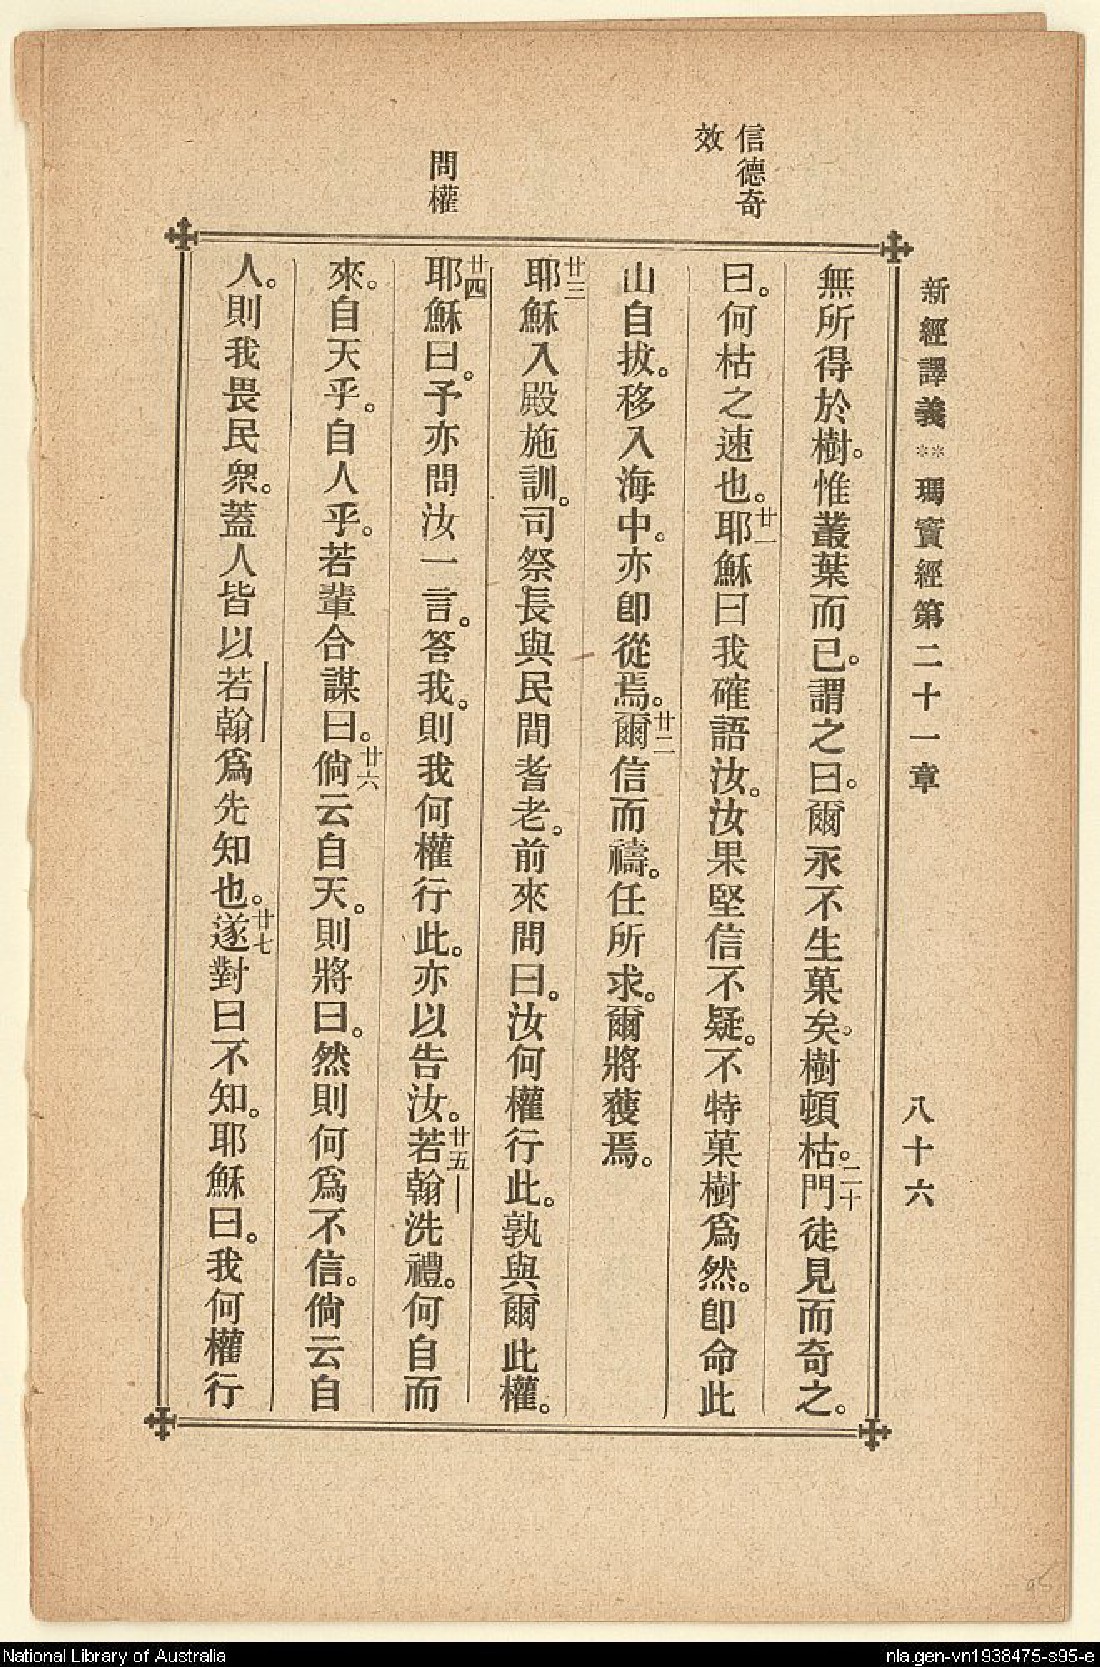 新經譯義**瑪竇經第二十一章 八十六
信德奇
效
問權
無所得於樹。惟叢葉而已。謂之曰。爾永不生菓矣。樹頓枯。二十門徒見而奇之。
曰。何枯之速也。廿一耶穌曰我確語汝。汝果堅信不疑。不特菓樹爲然。卽命此
山自拔。移入海中。亦卽從焉。廿二爾信而禱。任所求。爾將獲焉。
廿三耶穌入殿施訓。司祭長與民間耆老。前來問曰。汝何權行此。孰與爾此權。
廿四耶穌曰。予亦問汝一言。答我。則我何權行此。亦以告汝。廿五若翰洗禮。何自而
來。自天乎。自人乎。若輩合謀曰。廿六倘云自天。則將曰。然則何爲不信。倘云自
人。則我畏民衆。蓋人皆以若翰爲先知也。廿七遂對曰不知。耶穌曰。我何權行
National Library of Australia
nla.gen-vn1938475-s95-e